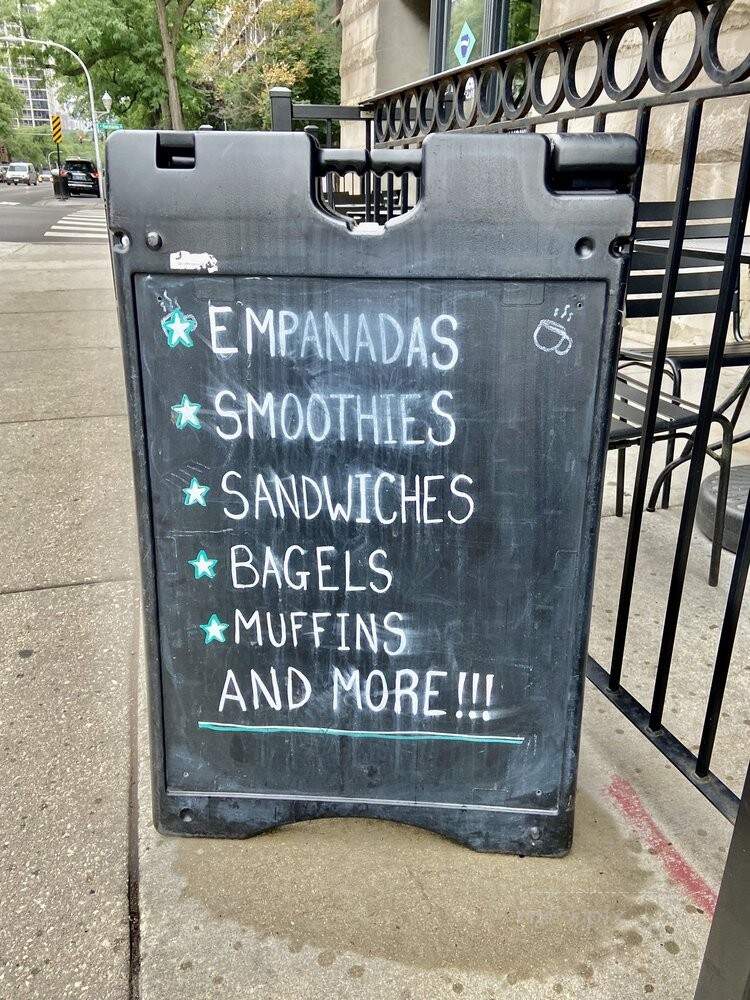 EMPANADAS
SMOOTHIES
SANDWICHES
BAGELS
MUFFINS
AND MORE!!!